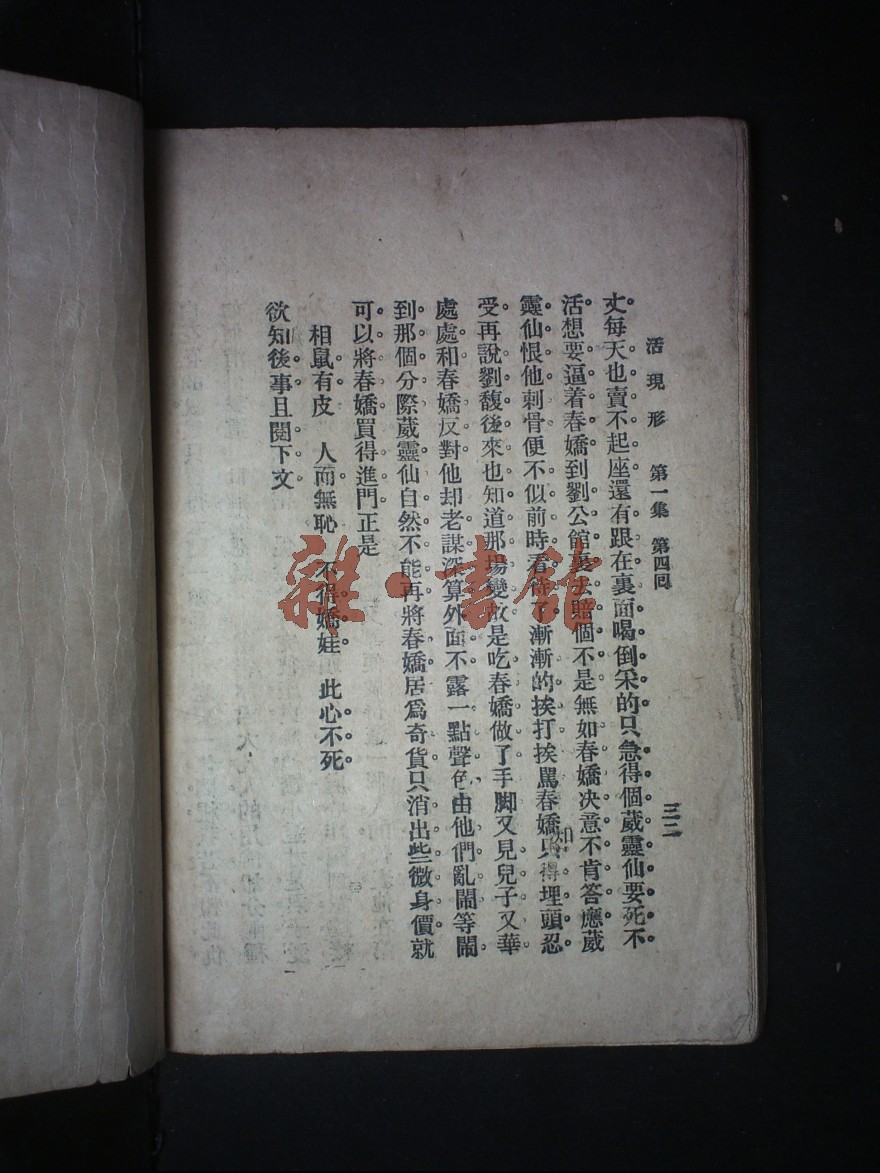 活現形 第一集 第四回 三二
丈每天也賣不起座還有跟在裏面喝倒采的只急得個葳靈仙要死不
活想要逼着春嬌到劉公館裏去賠個不是無如春嬌决意不肯答應葳
靈仙恨他刺骨便不似前時看待了漸漸的挨打挨罵春嬌只得埋頭忍
受再說劉馥後來也知道那場變故是吃春嬌做了手脚又見兒子又華
處處和春嬌反對他却老謀深算外面不露一點聲色由他們亂鬧等鬧
到那個分際葳靈仙自然不能再將春嬌居爲奇貨只消出些微身價就
可以將春嬌買得進門正是
相鼠有皮 人而無恥 不得嬌娃 此心不死
欲知後事且閱下文
雜·書館